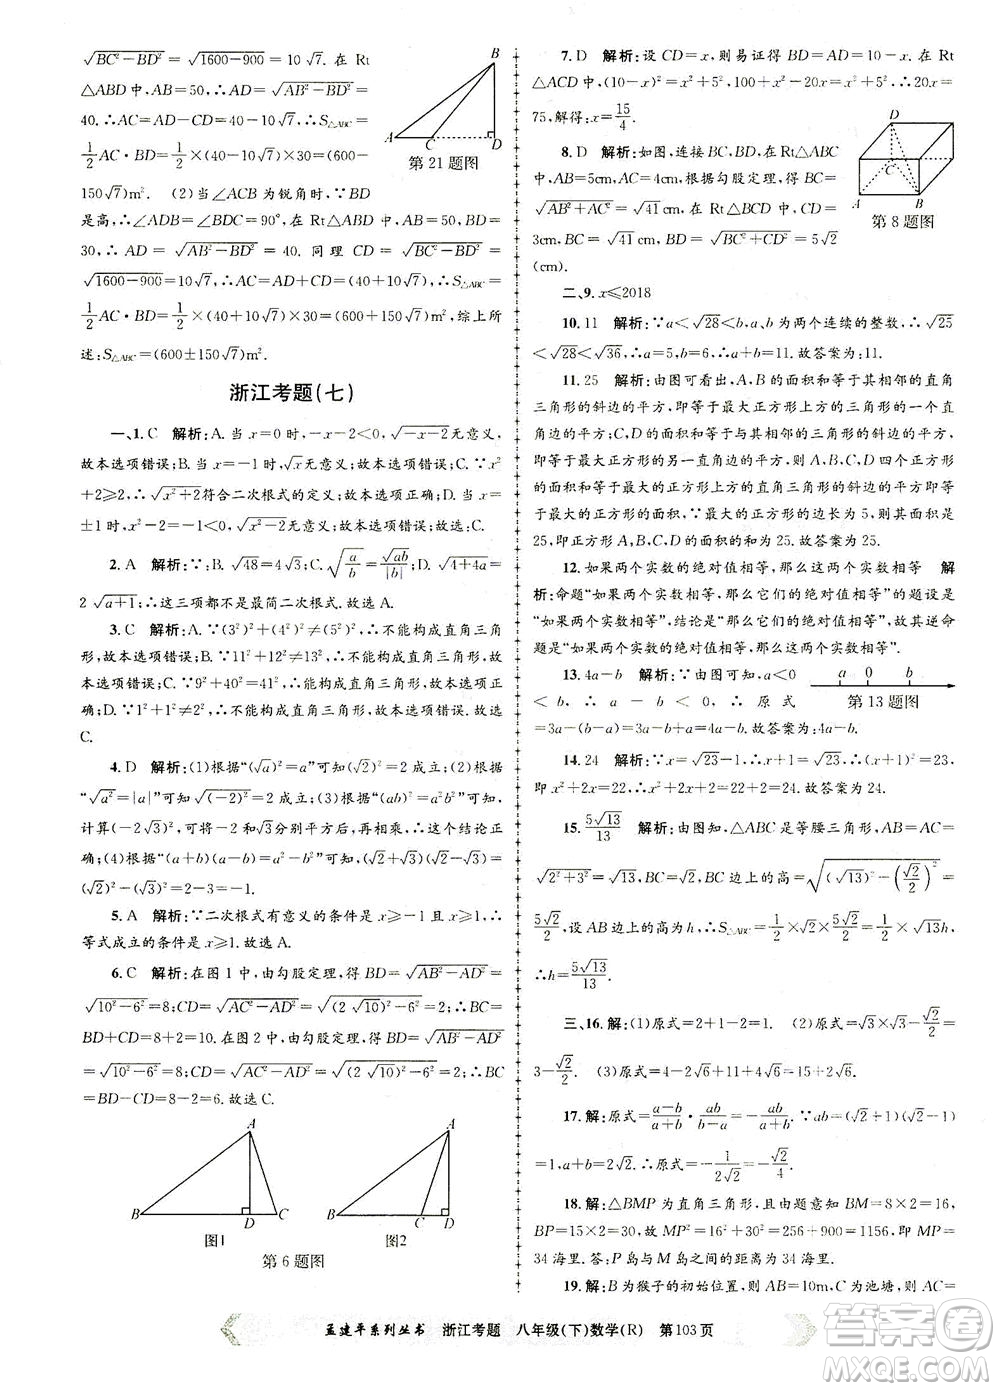 √(BC²-BD²)=√(1600-900)=10√7. 在 Rt
△ABD中,AB=50,∴AD=√(AB²-BD²)=
40. ∴AC=AD-CD=40-10√7,∴S△ABC=
1/2 AC·BD=1/2×(40-10√7)×30=(600-
150√7)m². (2)当∠ACB为锐角时,∵BD
是高,∴∠ADB=∠BDC=90°,在Rt△ABD中,
AB=50,BD=30,∴AD=√(AB²-BD²)=40. 同理 CD=√(BC²-BD²)=
√(1600-900)=10√7,∴AC=AD+CD=(40+10√7),∴S△ABC=
1/2 AC·BD=1/2×(40+10√7)×30=(600+150√7)m²,综上所
述:S△ABC=(600±150√7)m².
B
A C D
第21题图
浙江考题(七)
一、1. C 解析:A. 当 x=0时,-x-2<0,√(-x-2)无意义,
故本选项错误;B. 当 x=-1时,√x无意义;故本选项错误;C. ∵x²
+2≥2,∴√(x²+2)符合二次根式的定义;故本选项正确;D. 当 x=
±1时,x²-2=-1<0,√(x²-2)无意义;故本选项错误;故选C.
2. A 解析:∵√48=4√3;√(a/b)=√(ab)/|b|;√(4a+4)=
2√(a+1);∴这三项都不是最简二次根式. 故选A.
3. C 解析:A. ∵(3²)²+(4²)²≠(5²)²,∴不能构成直角三角
形,故本选项错误;B. ∵11²+12²≠13²,∴不能构成直角三角形,故
本选项错误;C. ∵9²+40²=41²,∴能构成直角三角形,故本选项正
确;D. ∵1²+1²≠2²,∴不能构成直角三角形,故本选项错误. 故选
C.
4. D 解析:(1)根据“(√a)²=a”可知(√2)²=2成立;(2)根据
“√a²=|a|”可知√(-2)²=2成立;(3)根据“(ab)²=a²b²”可知,
计算(-2√3)²,可将-2和√3分别平方后,再相乘. 所以这个结论正
确;(4)根据“(a+b)(a-b)=a²-b²”,(√2+√3)(√2-√3)=
(√2)²-(√3)²=2-3=-1. 故选D.
5. A 解析:∵二次根式有意义的条件是x≥-1和x≥1,∴
等式成立的条件是x≥1. 故选A.
6. C 解析:在图1中,由勾股定理,得BD=√(AB²-AD²)=
√(10²-6²)=8;CD=√(AC²-AD²)=√((2√10)²-6²)=2;∴BC=
BD+CD=8+2=10. 在图2中,由勾股定理,得BD=√(AB²-AD²)
=√(10²-6²)=8;CD=√(AC²-AD²)=√((2√10)²-6²)=2;∴BC
=BD-CD=8-2=6. 故选C.
A
B D C
图1
A
B C D
图2
第6题图
7. D 解析:设CD=x,则易证得BD=AD=10-x. 在Rt
△ACD中,(10-x)²=x²+5²,100+x²-20x=x²+5²,∴20x=
75,解得:x=15/4.
8. D 解析:如图,连接BC,BD,在Rt△ABC
中,AB=5cm,AC=4cm,根据勾股定理,得BC=
√(AB²+AC²)=√41cm,在Rt△BCD中,CD=
3cm,BC=√41cm,BD=√(BC²+CD²)=5√2
(cm).
D
C
A B
第8题图
二、9. x≤2018
10. 11 解析:∵a<√28<b,a、b为两个连续的整数,∴√25
<√28<√36,∴a=5,b=6,∴a+b=11. 故答案为:11.
11. 25 解析:由图可看出,A,B的面积和等于其相邻的直角
三角形的斜边的平方,即等于最大正方形上方的三角形的一个直
角边的平方;C,D的面积和等于与其相邻的三角形的斜边的平方,
即等于最大正方形的另一直角边的平方,则A,B,C,D四个正方形
的面积和等于最大的正方形上方的直角三角形的斜边的平方即等
于最大的正方形的面积,∵最大的正方形的边长为5,则其面积是
25,即正方形A,B,C,D的面积的和为25. 故答案为25.
12. 如果两个实数的绝对值相等,那么这两个实数相等 解
析:命题“如果两个实数相等,那么它们的绝对值相等”的题设是
“如果两个实数相等”,结论是“那么它们的绝对值相等”,故其逆命
题是“如果两个实数的绝对值相等,那么这两个实数相等”.
13. 4a-b 解析:根据数轴可知,a<0
<b,∴a-b<0,∴原式
=3a-(b-a)=3a-b+a=4a-b. 故答案为:4a-b.
a 0 b
第13题图
14. 24 解析:∵x=√23-1,∴x+1=√23,∴(x+1)²=23,
即x²+2x+1=23,∴x²+2x=22,∴x²+2x+2=24. 故答案为24.
15. 5√13/13 解析:由图知,△ABC是等腰三角形,AB=AC=
√(2²+3²)=√13,BC=√2,BC边上的高=√((√13)²-(√2/2)²)=
5√2/2,设AC边上的高为h,∴S△ABC=1/2×√2×5√2/2=1/2×√13h,
∴h=5√13/13.
三、16. 解:(1)原式=2+1-2=1. (2)原式=√3×√3-√2/2=
3-√2/2. (3)原式=4-2√6+11=15-2√6.
17. 解:原式=(a-b)/(a+b)·ab/(a-b)=ab/(a+b). ∵ab=(√2+1)(√2-1)=
1,a+b=2√2. ∴原式=1/(2√2)=√2/4.
18. 解:△BMP为直角三角形,且由题意知BM=8×2=16,
BP=15×2=30,故MP²=16²+30²=256+900=1156,所以MP=
34海里. 答:P岛与M岛之间的距离为34海里.
19. 解:B为猴子的初始位置,则AB=10m,C为池塘,则AC=
孟建平系列丛书 浙江考题 八年级(下)数学(R) 第103页
答案圈
MXQE.COM